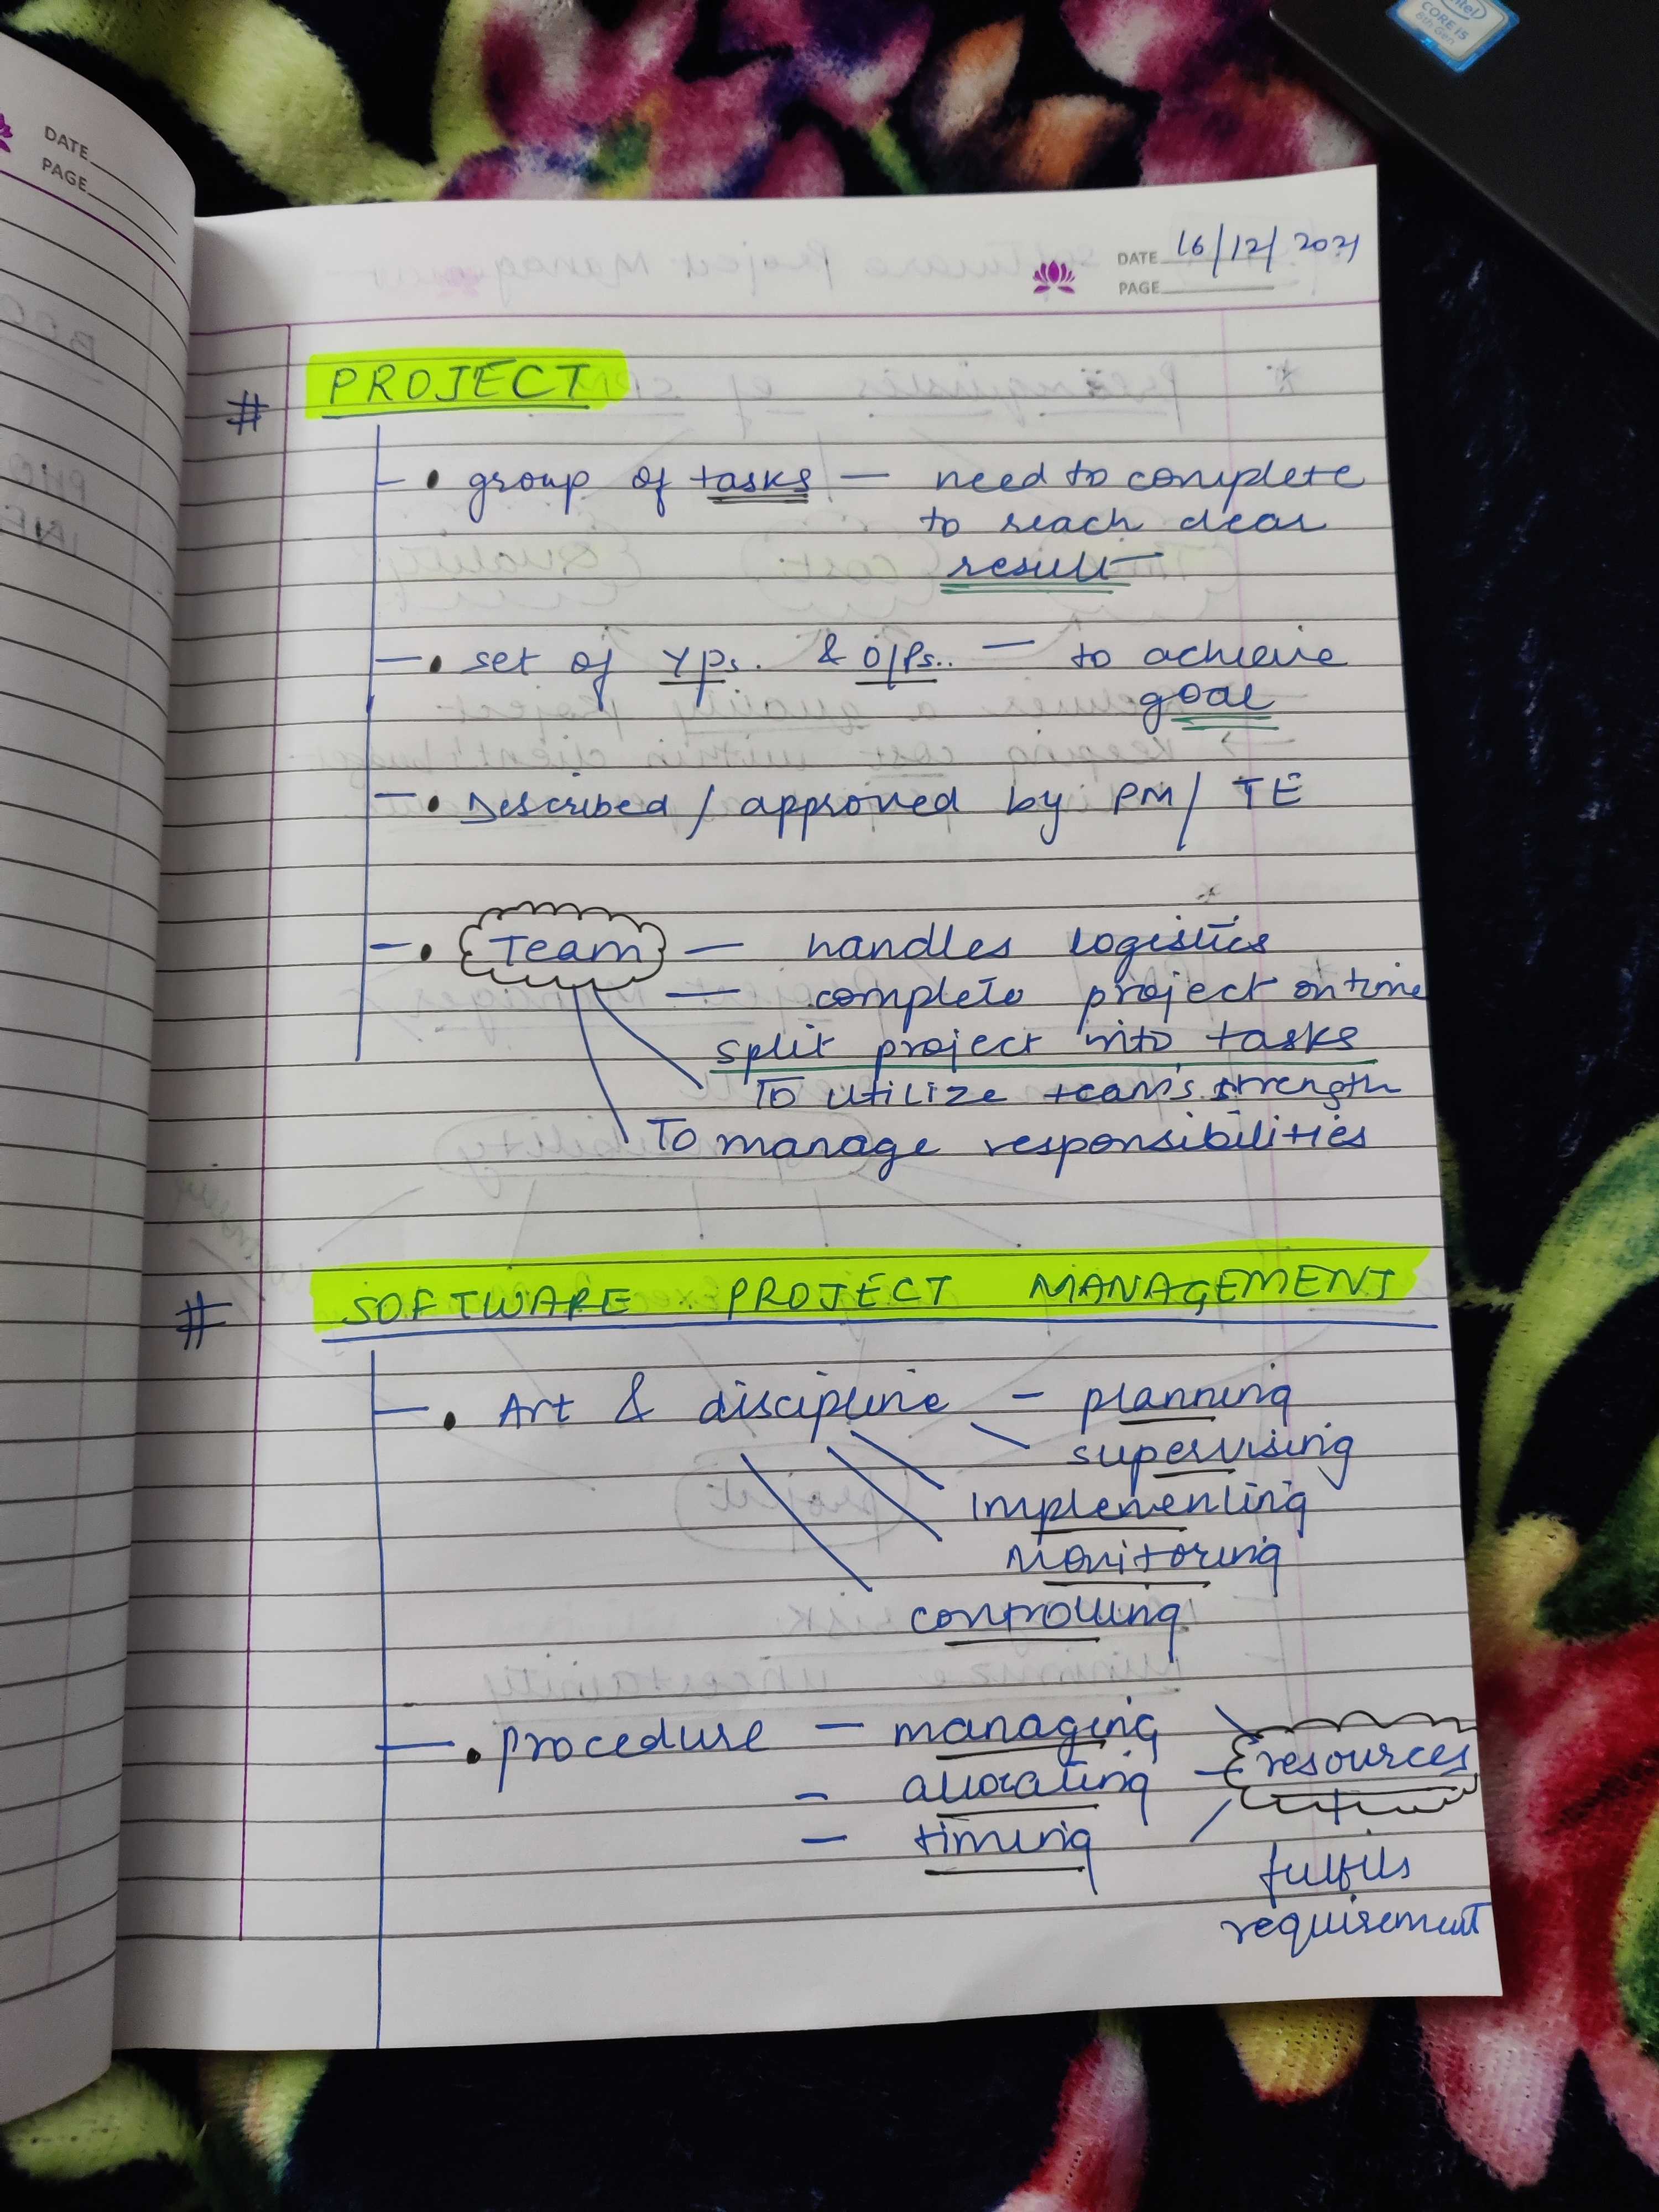 intel
CORE i5
8th Gen
DATE
PAGE
DATE 16/12/2021
PAGE
# PROJECT
• group of tasks — need to complete
to reach clear
result
• set of I/ps. & O/Ps.. — to achieve
goal
• Described / approved by PM / TE
• Team — handles logistics
— complete project on time
split project into tasks
To utilize team's strength
To manage responsibilities
# SOFTWARE PROJECT MANAGEMENT
• Art & discipline — planning
supervising
Implementing
Monitoring
controlling
• procedure — managing
- allocating — resources
— timing +
fulfils
requirement